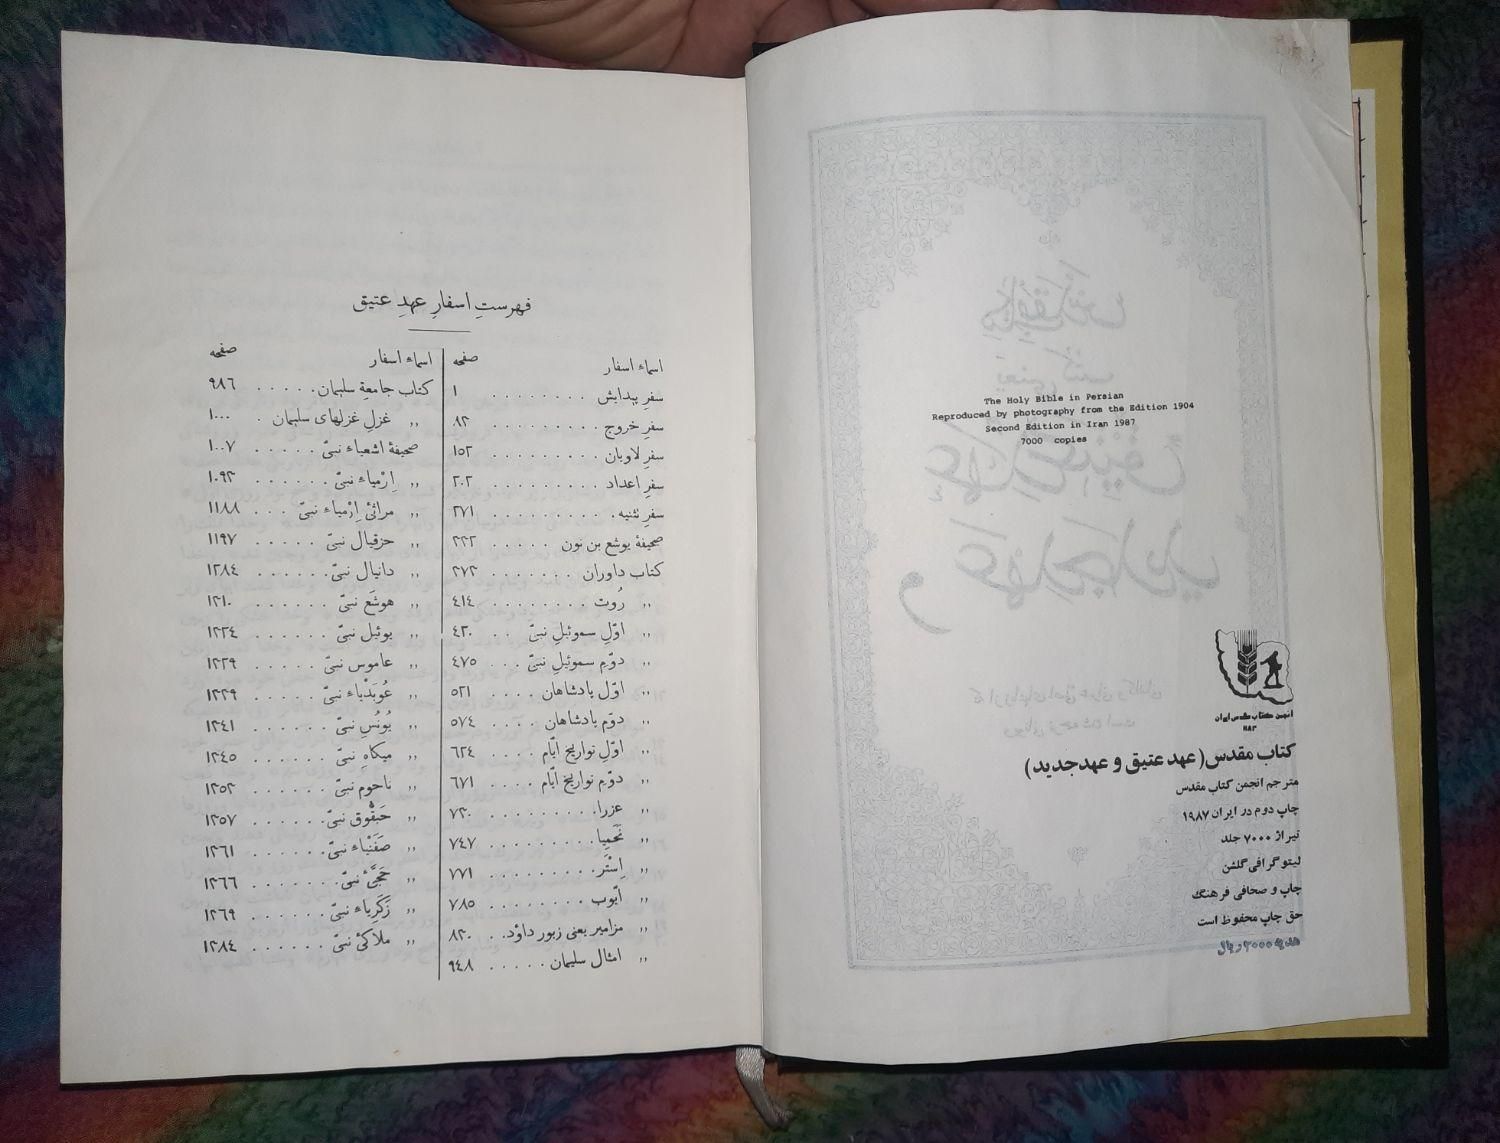 The Holy Bible in Persian
Reproduced by photography from the Edition 1904
Second Edition in Iran 1987
7000 copies
انجمن کتاب مقدس ایران
کتاب مقدس (عهد عتیق و عهد جدید)
مترجم انجمن کتاب مقدس
چاپ دوم در ایران ۱۹۸۷
تیراژ ۷۰۰۰ جلد
لیتوگرافی گلشن
چاپ و صحافی فرهنگ
حق چاپ محفوظ است
هدیه ۳۰۰۰ ریال
فهرستِ اسفارِ عهدِ عتیق
اسماء اسفار صفحه
سفرِ پیدایش ........ ۱
سفرِ خروج ......... ۸۲
سفرِ لاویان ......... ۱۵۲
سفرِ اعداد ......... ۲۰۲
سفرِ تثنیه ......... ۲۷۱
صحیفهٔ یوشع بن نون ..... ۳۳۲
کتاب داوران ....... ۳۷۳
 ,, رُوت ........ ٤۱٤
 ,, اوّلِ سموئیلِ نبیّ .. ٤۲۰
 ,, دوّمِ سموئیلِ نبیّ ... ٤۷۵
 ,, اوّل پادشاهان .... ۵۲۱
 ,, دوّم پادشاهان .... ۵۷٤
 ,, اوّلِ تواریخ ایّام .... ٦۲٤
 ,, دوّم تواریخ ایّام .... ٦۷۱
 ,, عزرا ......... ۷۳۰
 ,, نَحَمِیا ......... ۷٤۷
 ,, اِسْتَر ......... ۷۷۱
 ,, ایّوب ........ ۷۸۵
 ,, مزامیر یعنی زبور داوُد .. ۸۳۰
 ,, امثال سلیمان ..... ۹٤۸
اسماء اسفار صفحه
کتاب جامعهِ سلیمان ..... ۹۸٦
 ,, غزلِ غزلهای سلیمان . ۱۰۰۰
صحیفهٔ اشعیاء نبیّ ..... ۱۰۰۷
 ,, اِرْمیاء نبیّ ...... ۱۰۹۳
 ,, مراثیٔ اِرْمیاء نبیّ ... ۱۱۸۸
 ,, حزقیال نبیّ ..... ۱۱۹۷
 ,, دانیال نبیّ ...... ۱۲۸٤
 ,, هوشَع نبیّ ...... ۱۳۱۰
 ,, یوئیل نبیّ ...... ۱۳۲٤
 ,, عاموس نبیّ ..... ۱۳۲۹
 ,, عُوبَدْیاء نبیّ ..... ۱۳۳۹
 ,, یُونُسِ نبیّ ...... ۱۳٤۱
 ,, میکاهِ نبیّ ...... ۱۳٤۵
 ,, ناحومِ نبیّ ...... ۱۳۵۳
 ,, حَبَقُّوق نبیّ ..... ۱۳۵۷
 ,, صَفَنْیاء نبیّ ..... ۱۳٦۱
 ,, حَجَّیٔ نبیّ ...... ۱۳٦٦
 ,, زَکَرِیاء نبیّ ..... ۱۳٦۹
 ,, ملاکیٔ نبیّ ...... ۱۳۸٤